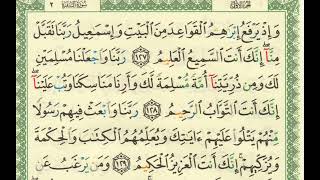 وَإِذْ يَرْفَعُ إِبْرَٰهِۦمُ ٱلْقَوَاعِدَ مِنَ ٱلْبَيْتِ وَإِسْمَٰعِيلُ رَبَّنَا تَقَبَّلْ
مِنَّآ إِنَّكَ أَنتَ ٱلسَّمِيعُ ٱلْعَلِيمُ ١٢٧ رَبَّنَا وَٱجْعَلْنَا مُسْلِمَيْنِ
لَكَ وَمِن ذُرِّيَّتِنَآ أُمَّةً مُّسْلِمَةً لَّكَ وَأَرِنَا مَنَاسِكَنَا وَتُبْ عَلَيْنَآ
إِنَّكَ أَنتَ ٱلتَّوَّابُ ٱلرَّحِيمُ ١٢٨ رَبَّنَا وَٱبْعَثْ فِيهِمْ رَسُولًا
مِّنْهُمْ يَتْلُوا۟ عَلَيْهِمْ ءَايَٰتِكَ وَيُعَلِّمُهُمُ ٱلْكِتَٰبَ وَٱلْحِكْمَةَ
وَيُزَكِّيهِمْ إِنَّكَ أَنتَ ٱلْعَزِيزُ ٱلْحَكِيمُ ١٢٩ وَمَن يَرْغَبُ عَن